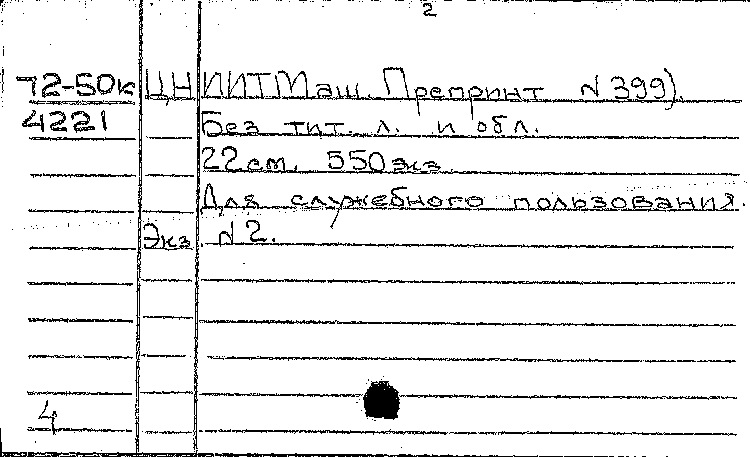 2
72-50к ЦНИИТМаш. Препринт N 399).
4221 Без тит. л. и обл.
22 см. 550 экз.
Для служебного пользования.
Экз. N 2.
4